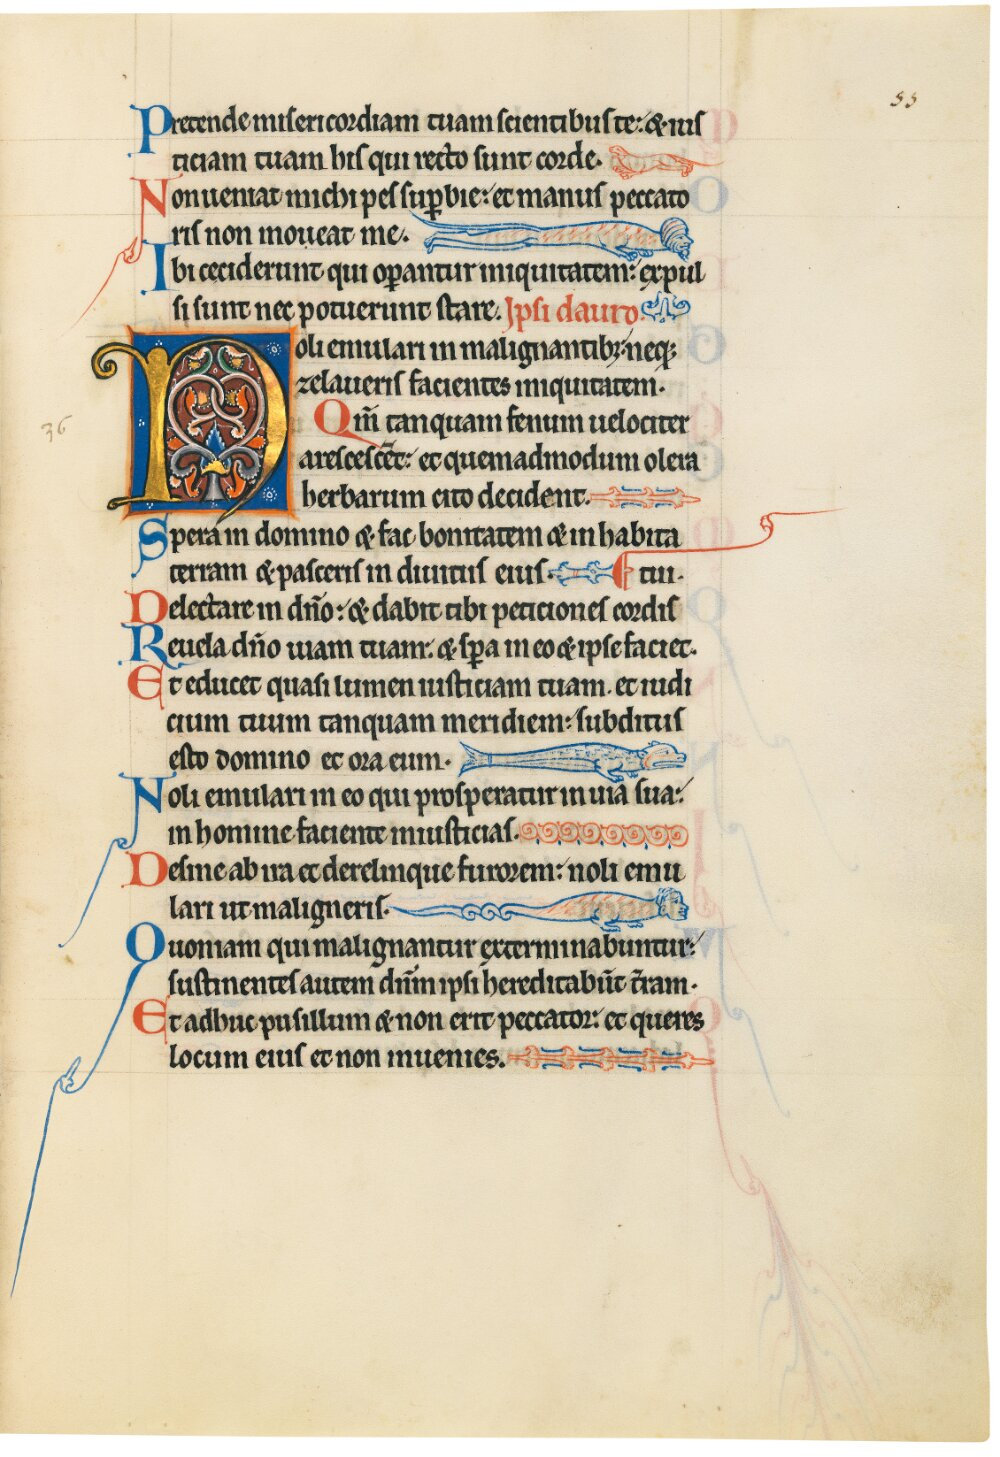 55
Pretende misericordiam tuam scientibus te: & ius
ticiam tuam his qui recto sunt corde.
Non ueniat michi pes sup̄bie: et manus peccato
ris non moueat me.
Ibi ceciderunt qui op̄antur iniquitatem: expul
si sunt nec potuerunt stare. Ipsi dauid
Noli emulari in malignantibꝫ: neqꝫ
zelaueris facientes iniquitatem.
36
Qm̄ tanquam fenum uelociter
arescescēt: et quemadmodum olera
herbarum cito decident.
Spera in domino & fac bonitatem & inhabita
terram & pasceris in diuitiis eius. tui.
Delectare in dn̄o: & dabit tibi peticiones cordis
Reuela dn̄o uiam tuam: & sp̄a in eo & ipse faciet.
Et educet quasi lumen iusticiam tuam. et iudi
cium tuum tanquam meridiem: subditus
esto domino et ora eum.
Noli emulari in eo qui prosperatur in uia sua:
in homine faciente iniusticias.
Desine ab ira et derelinque furorem: noli emu
lari ut maligneris.
Quoniam qui malignantur exterminabuntur:
sustinentes autem dn̄m ipsi hereditabūt t̄ram.
Et adhuc pusillum & non erit peccator: et queres
locum eius et non inuenies.